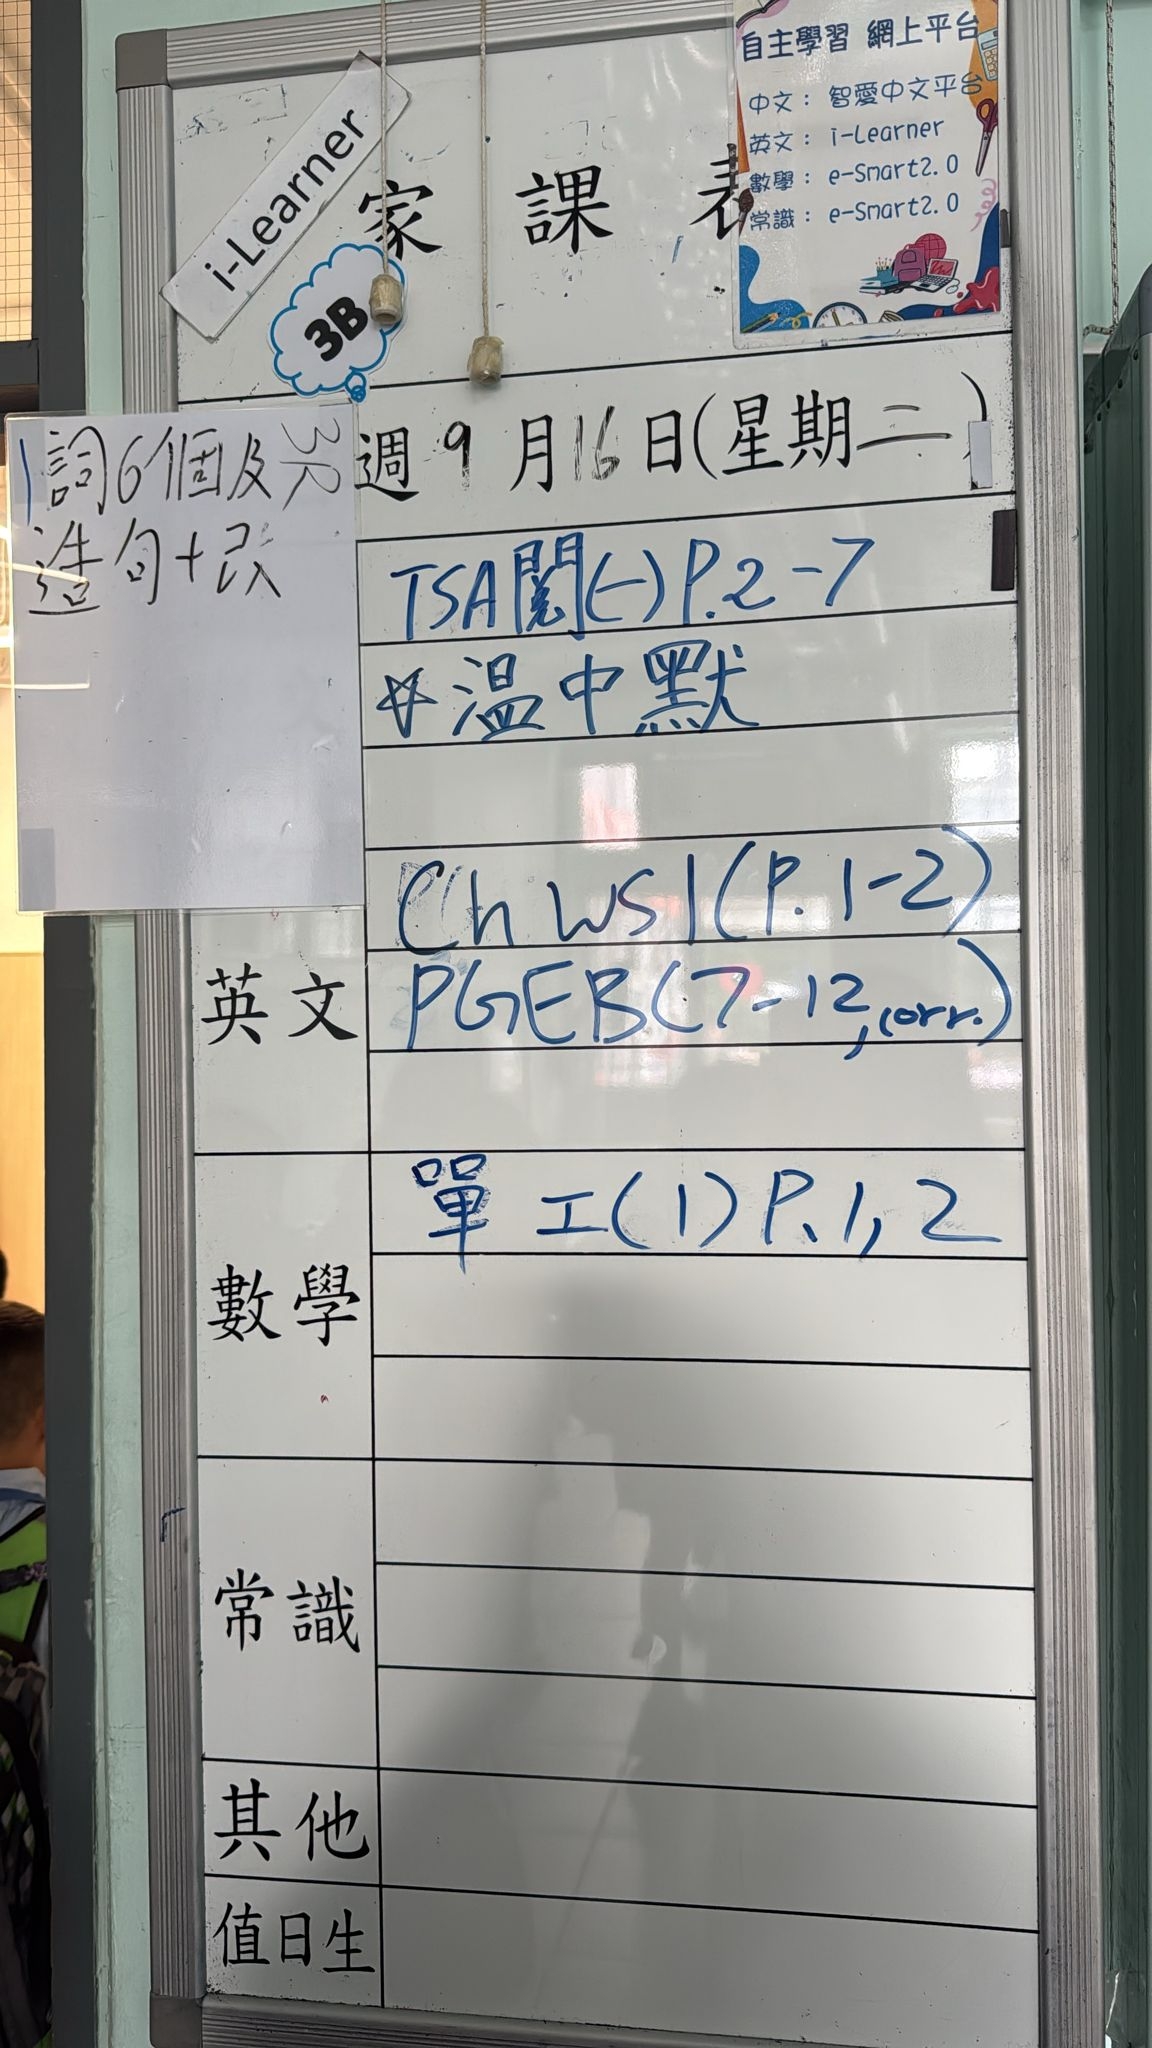 自主學習 網上平台
中文： 智愛中文平台
英文： i-Learner
數學： e-Smart2.0
常識： e-Smart2.0
i-Learner
家 課 表
3B
週 9 月 16 日(星期二)
詞6個及
造句+改
TSA閱(一)P.2-7
☆溫中默
英文
Ch WS1(P.1-2)
PGEB(7-12, corr.)
數學
單 工(1)P.1,2
常識
其他
值日生